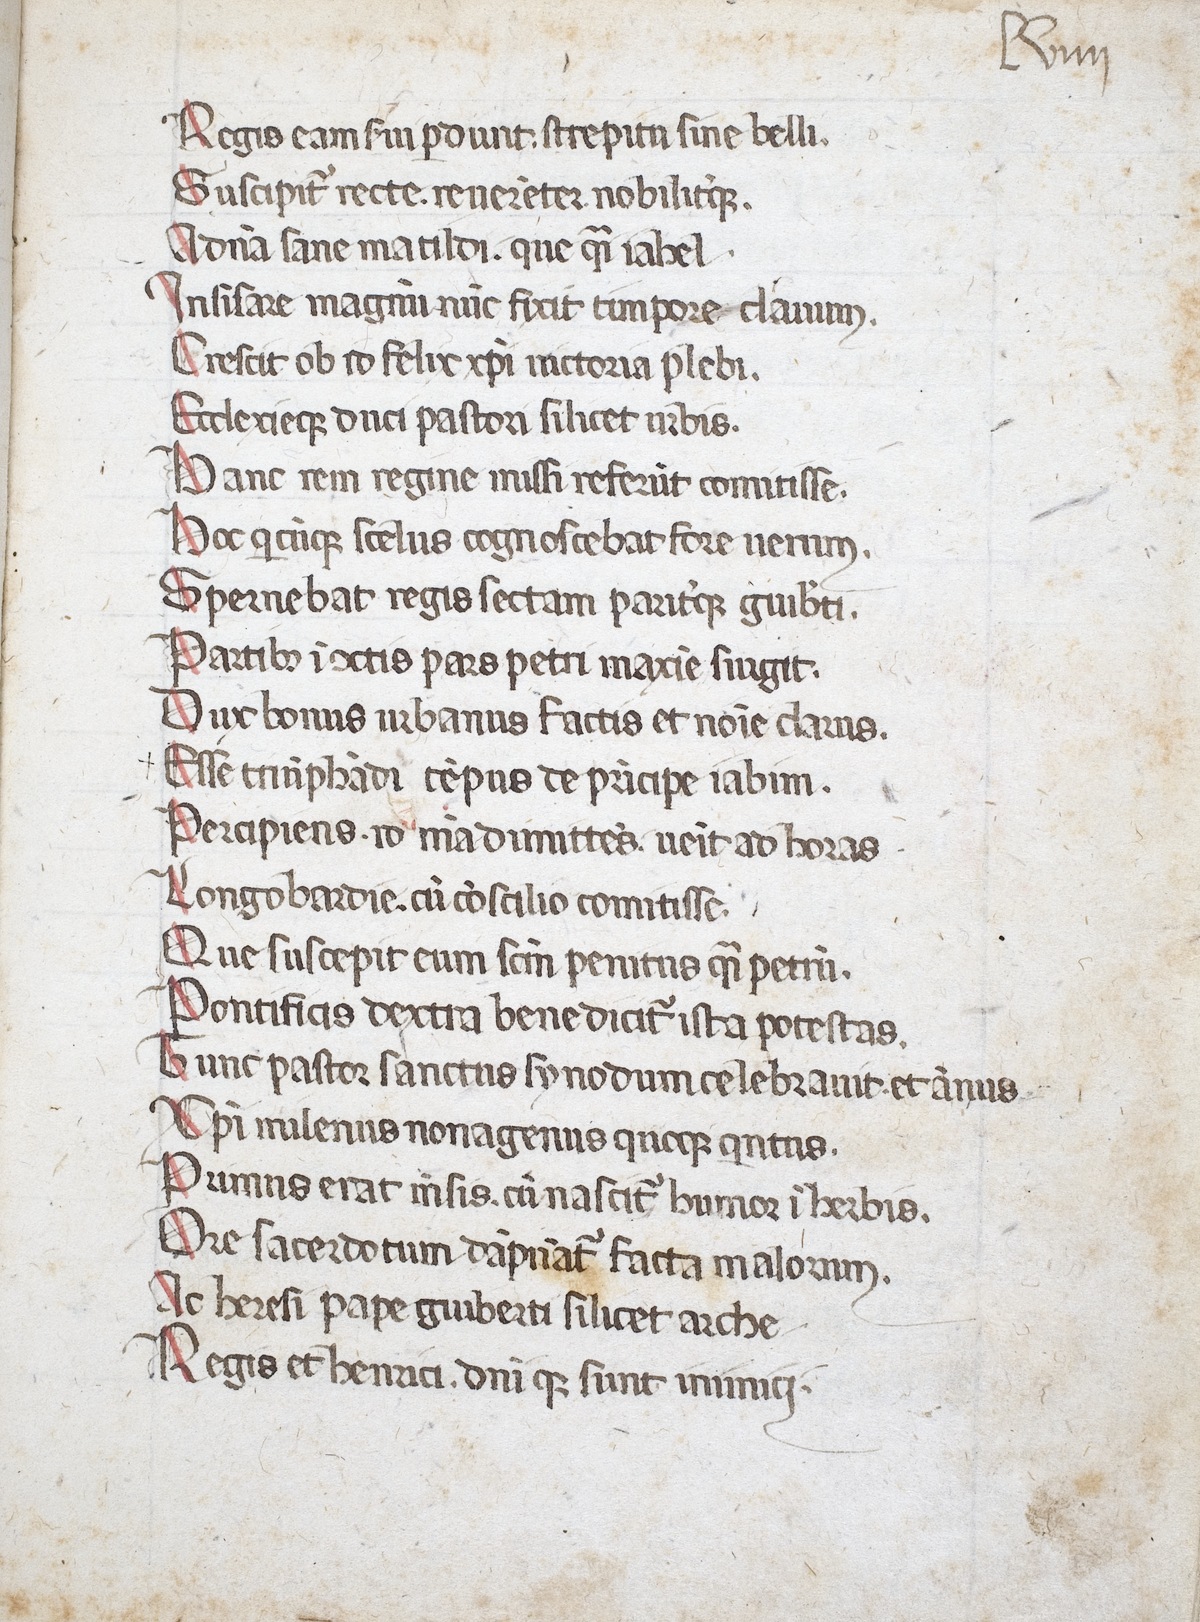 lxviiij
Regis eam sui ꝑdunt. strepitu sine belli.
Suscipit᷑ recte. reuerẽter. nobilit̾qꝫ.
A dn̄a sane matildi. que qͣi iahel
In sisare magnũ nũc fixit timpore clauum.
Crescit ob id felix xp̄i uictoria plebi.
Ecclexieqꝫ duci pastori silicet urbis.
Hanc rem regine missi referũt comitisse.
Hoc qͥcũqꝫ scelus cognoscebat fore uerum.
Spernebat regis sectam parit̾qꝫ guib̾ti.
Partibꝫ ĩ cũctis pars petri maxĩe surgit.
Dux bonus urbanus factis et noĩe clarus.
Esse triũphãdi tẽpus de prĩcipe iabim.
Percipiens. id nr̃a dimittẽs. ueĩt ad horas
Longobardie. cũ cõscilio comitisse.
Que suscepit eum scm̄ penitus qͣi petrũ.
Pontificis dextra benedicit᷑ ista potestas.
Hunc pastor sanctus synodum celebrauit. et ãnus
Xp̄i milenus nonagenus quoqꝫ qͥntus.
Primus erat mẽsis. cũ nascit᷑ humor ĩ herbis.
Ore sacerdotum dãpnat᷑ facta malorum.
Ac heresi pape guiberti silicet arche
Regis et henrici. dn̄i qꝫ sunt inimicj.